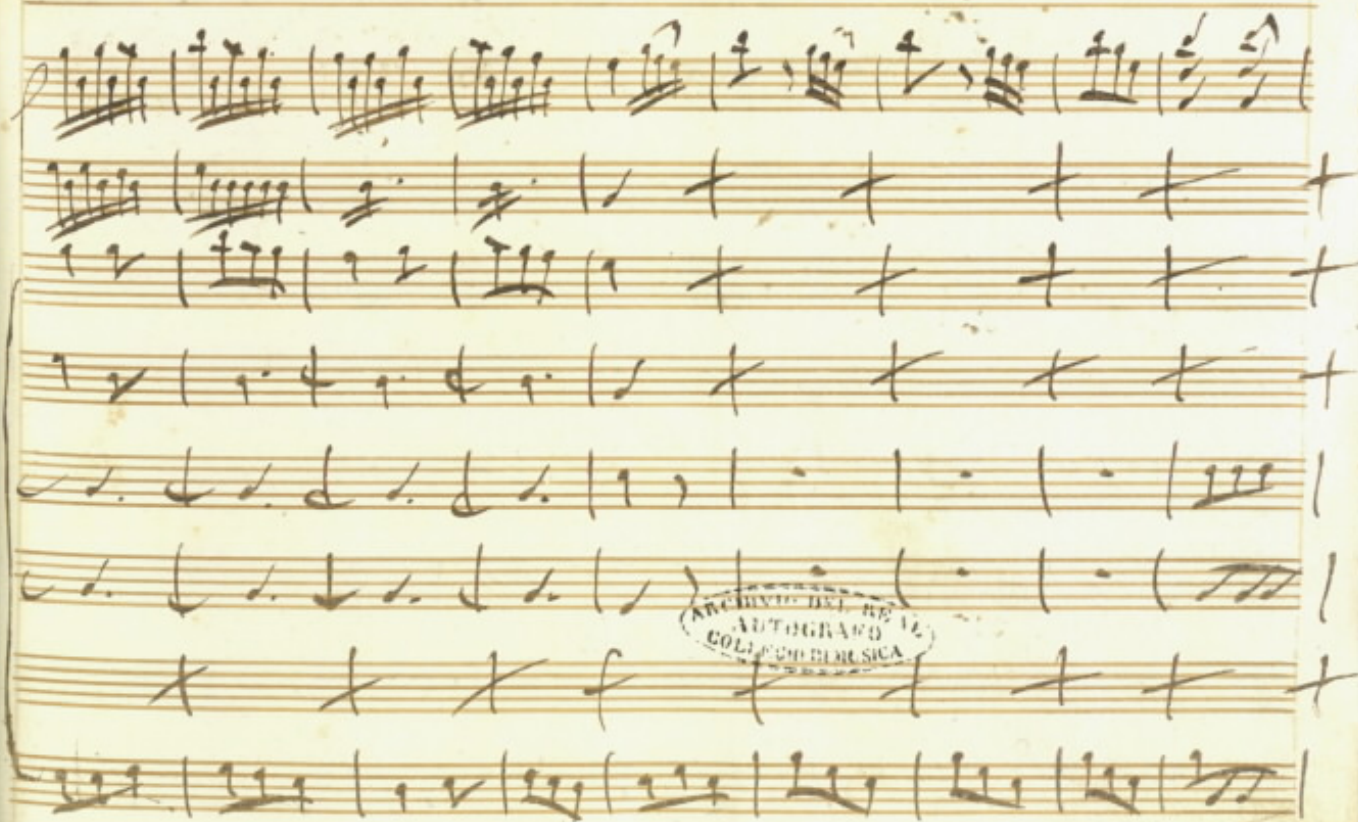 ARCHIVIO DEL REAL
AUTOGRAFO
COLLEGIO DI MUSICA